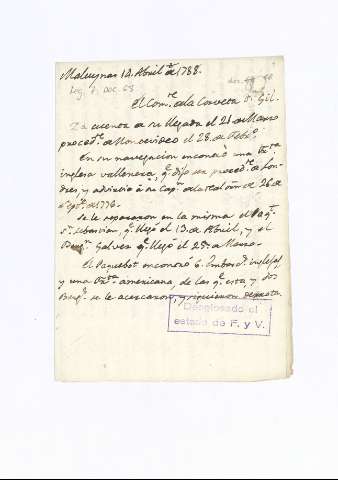 Maluynas 14. Abril de 1788.
Leg. 1. Doc. 68
El Com.te de la Corveta S.n Gil.
Da cuenta de su llegada el 21 de Marzo
proced.te de Montevideo el 28 de Feb.o
En su navegacion encontró una Frag.ta
inglesa vallenera, q.e dijo ser proced.te de Lon-
dres, y advirtió a su Cap.n de la real orn. de 26 de
Sept.e de 1776.
Se le repararon en la misma el Paq.t
S.n Sebastian, q.e llegó el 13 de Abril, y el
Berg.n Galvez q.e llegó el 25 de Marzo.
El Paquebot encontró 6. Embarc.s inglesas,
y una Frag.ta americana, de las q.e esta, y dos
Berg.s se le acercaron, y siguieron derrota.
Desglosado al
estado de F. y V.